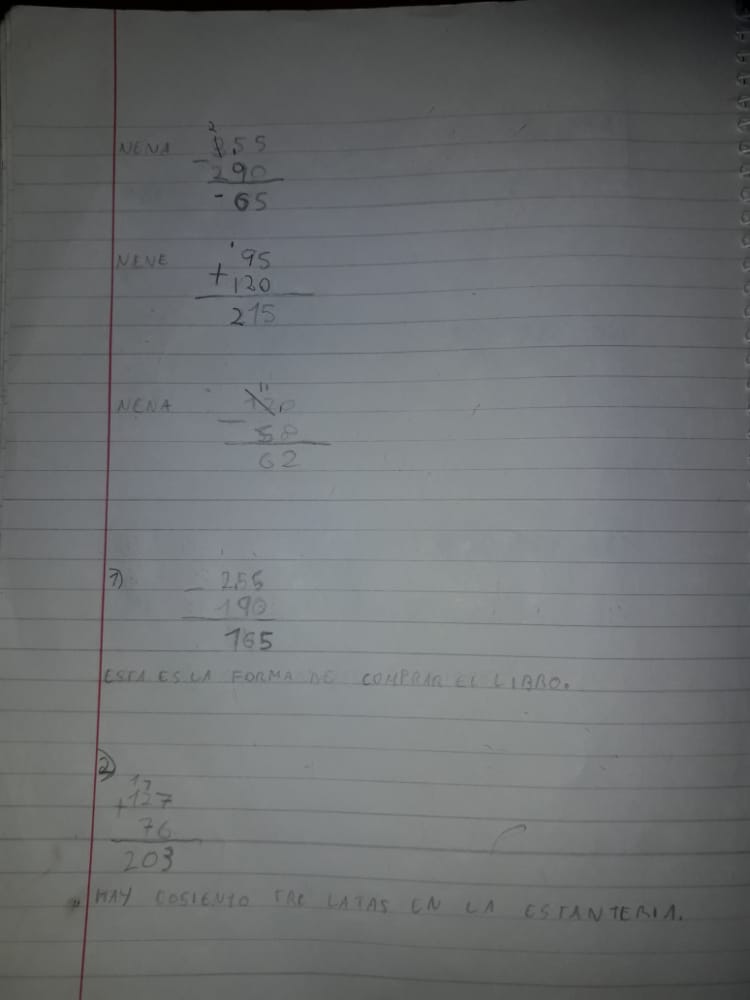 2
NENA 355
- 290
- 65
NENE 95
+ 120
215
11
NENA 120
- 58
62
1) 255
- 190
165
ESTA ES LA FORMA DE COMPRAR EL LIBRO.
2)
+ 127
76
203
HAY DOSIENTO TRE LATAS EN LA ESTANTERIA.